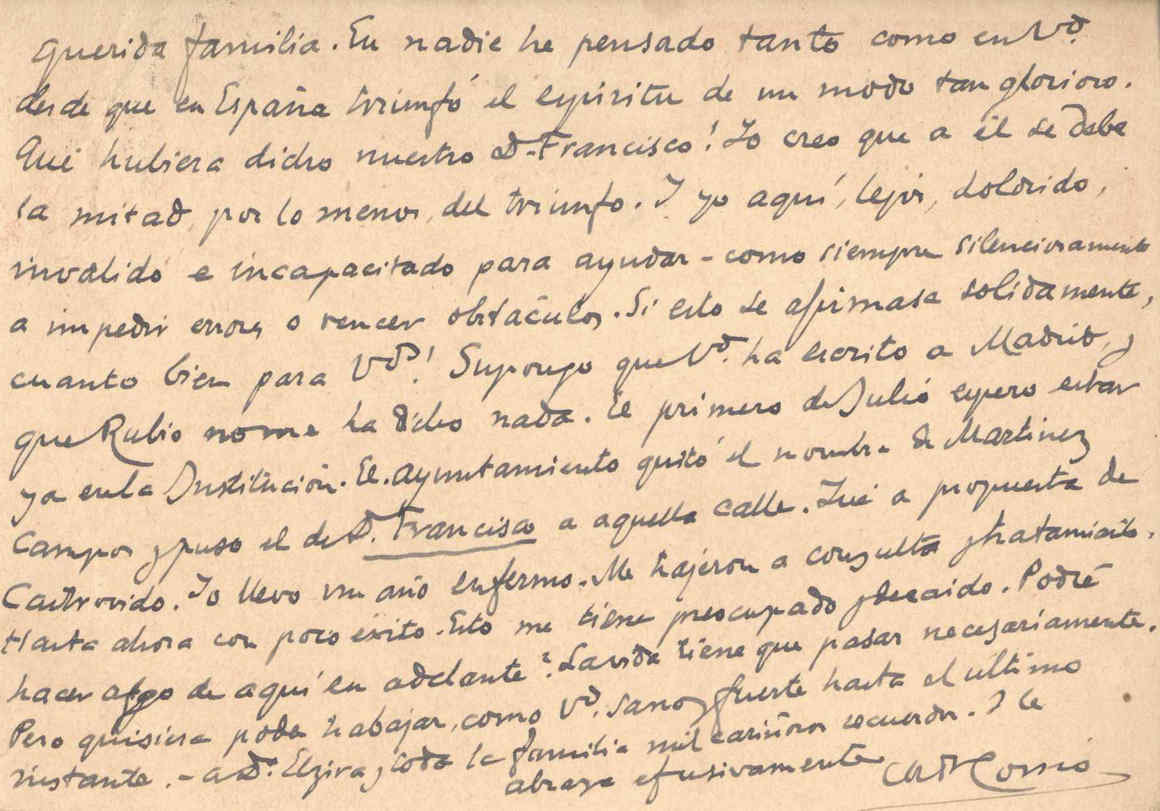 Querida familia. En nadie he pensado tanto como en Vd.
desde que en España triunfó el espíritu de un modo tan glorioso.
Qué hubiera dicho nuestro D. Francisco! Yo creo que a él se debe
la mitad, por lo menos, del triunfo. Y yo aquí, lejos, dolorido,
inválido e incapacitado para ayudar - como siempre silenciosamente
a impedir errores o vencer obstáculos. Si esto se afirmase solidamente,
cuanto bien para Vds! Supongo que Vd. ha escrito a Madrid, y
que Rubio no me ha dicho nada. El primero de Julio espero estar
ya en la Institución. El Ayuntamiento quitó el nombre de Martinez
Campos y puso el de D. Francisco a aquella calle. Fué a propuesta de
Castrovido. Yo llevo un año enfermo. Me trajeron a consulta y tratamiento.
Hasta ahora con poco éxito. Esto me tiene preocupado y decaido. Podré
hacer algo de aquí en adelante? La vida tiene que pasar necesariamente.
Pero quisiera poder trabajar, como Vd. sano y fuerte hasta el ultimo
instante. - a Dª. Elvira y toda la familia mil cariñosos recuerdos. Y le
abraza efusivamente